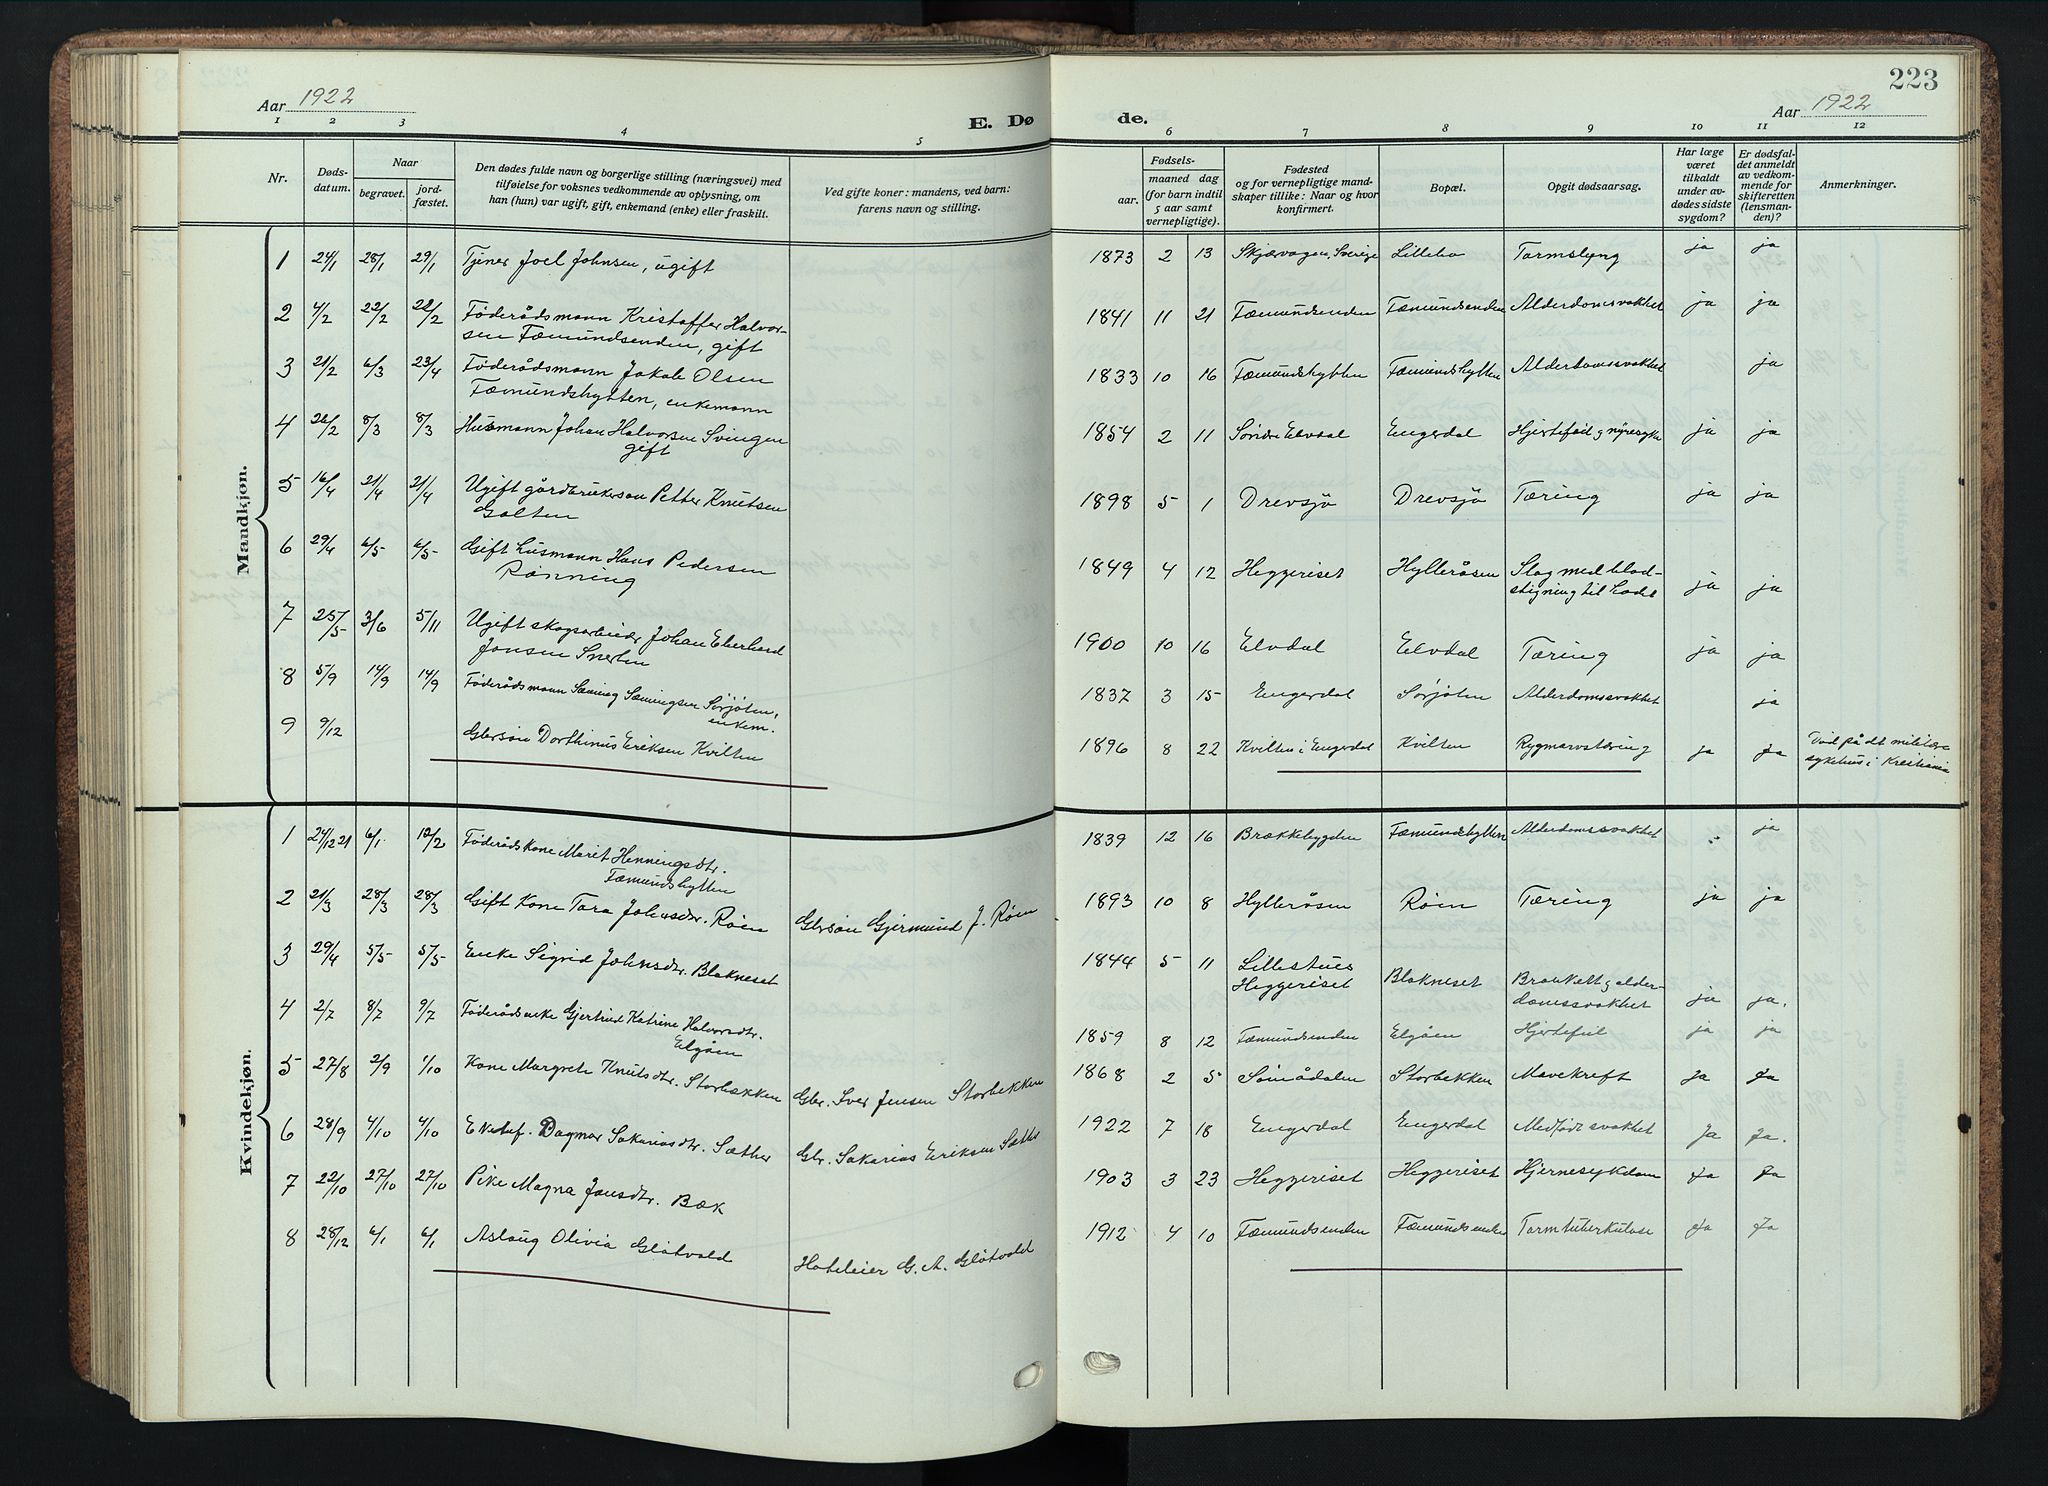 223
Aar 1922
E. Døde.
Aar 1922
1 2 3 4 5 6 7 8 9 10 11 12
Nr.
Døds-
datum.
Naar
begravet.
jord-
fæstet.
Den dødes fulde navn og borgerlige stilling (næringsvei) med
tilføielse for voksnes vedkommende av oplysning, om
han (hun) var ugift, gift, enkemand (enke) eller fraskilt.
Ved gifte koner: mandens, ved barn:
farens navn og stilling.
Fødsels-
aar. maaned dag
(for barn indtil
5 aar samt
vernepligtige).
Fødested
og for vernepligtige mand-
skaper tillike: Naar og hvor
konfirmert.
Bopæl.
Opgit dødsaarsag.
Har læge
været
tilkaldt
under av-
dødes sidste
sygdom?
Er dødsfal-
det anmeldt
av vedkom-
mende for
skifteretten
(lensman-
den)?
Anmerkninger.
Mandkjøn.
1 24/1 28/1 29/1 Tjener Joel Johnsen, ugift 1873 2 13 Skjærvagen, Sverige Lillebo Tarmslyng ja ja
2 4/2 22/2 22/2 Føderådsmann Kristoffer Halvor- 1841 11 21 Fæmundsenden Fæmundsenden Alderdomssvakhet ja ja
sen Fæmundsenden, gift
3 21/2 6/3 23/4 Føderådsmann Jakob Olsen 1833 10 16 Fæmundshytten Fæmundshytten Alderdomssvakhet ja
Fæmundshytten, enkemann
4 26/2 8/3 8/3 Husmann Johan Halvorsen Svingen 1854 2 11 Søndre Elvdal Engerdal Hjertefeil og nyresyke ja ja
gift
5 16/4 21/4 21/4 Ugift gårdbrukerson Petter Knutsen 1898 5 1 Drevsjø Drevsjø Tæring ja ja
Galten
6 29/4 6/5 6/5 Gift husmann Hans Pedersen 1849 4 12 Heggeriset Hylleråsen Slag med blod-
Rønning stigning til hodet ja ja
7 25/5 3/6 5/11 Ugift skogsarbeider Johan Eberhard 1900 10 16 Elvdal Elvdal Tæring ja ja
Jonsen Snerten
8 5/9 14/9 14/9 Føderådsmann Sæming Sæmingsen Sørjøten, 1837 3 15 Engerdal Sørjøten Alderdomssvakhet ja
enkem.
9 9/12 Gbrsøn Dorthinus Eriksen Kvilten 1896 8 22 Kvilten i Engerdal Kvilten Rygmarvstæring ja ja Død på dt militære
sykehus i Kristiania
Kvindekjøn.
1 24/12 21 6/1 12/2 Føderådskone Marit Henningsdtr. 1839 12 16 Brækkebygden Fæmundshytten Alderdomssvakhet ja
Fæmundshytten
2 21/3 28/3 28/3 Gift Kone Tora Johnsdtr. Røen Gbrsøn Gjermund J. Røen 1893 10 8 Hylleråsen Røen Tæring ja ja
3 29/4 5/5 5/5 Enke Sigrid Johnsdtr. Blakneset 1844 5 11 Lillestues
Heggeriset Blakneset Bronkitt og alder-
domssvakhet ja ja.
4 2/7 8/7 9/7 Føderådsenke Gjertrud Katrine Halvorsdtr. 1859 8 12 Fæmundsenden Elgåen Hjertefeil ja ja
Elgåen
5 27/8 2/9 1/10 Kone Margrete Knutsdtr. Storbækken Gbr. Iver Jensen Storbekken 1868 2 5 Sømådalen Storbekken Mavekreft Ja Ja
6 28/9 4/10 4/10 Ektef. Dagmar Sakariasdtr. Sæther Gbr. Sakarias Eriksen Sætter 1922 7 18 Engerdal Engerdal Medfødt svakhet Ja Ja.
7 22/10 27/10 27/10 Pike Magna Jonsdtr. Bæk 1903 3 23 Heggeriset Heggeriset Hjernesykdom Ja Ja
8 28/12 6/1 6/1 Aslaug Olivia Gløtvold Hoteleier G. A. Gløtvold 1912 4 10 Fæmundsenden Fæmundsenden Tarmtuberkulose Ja Ja